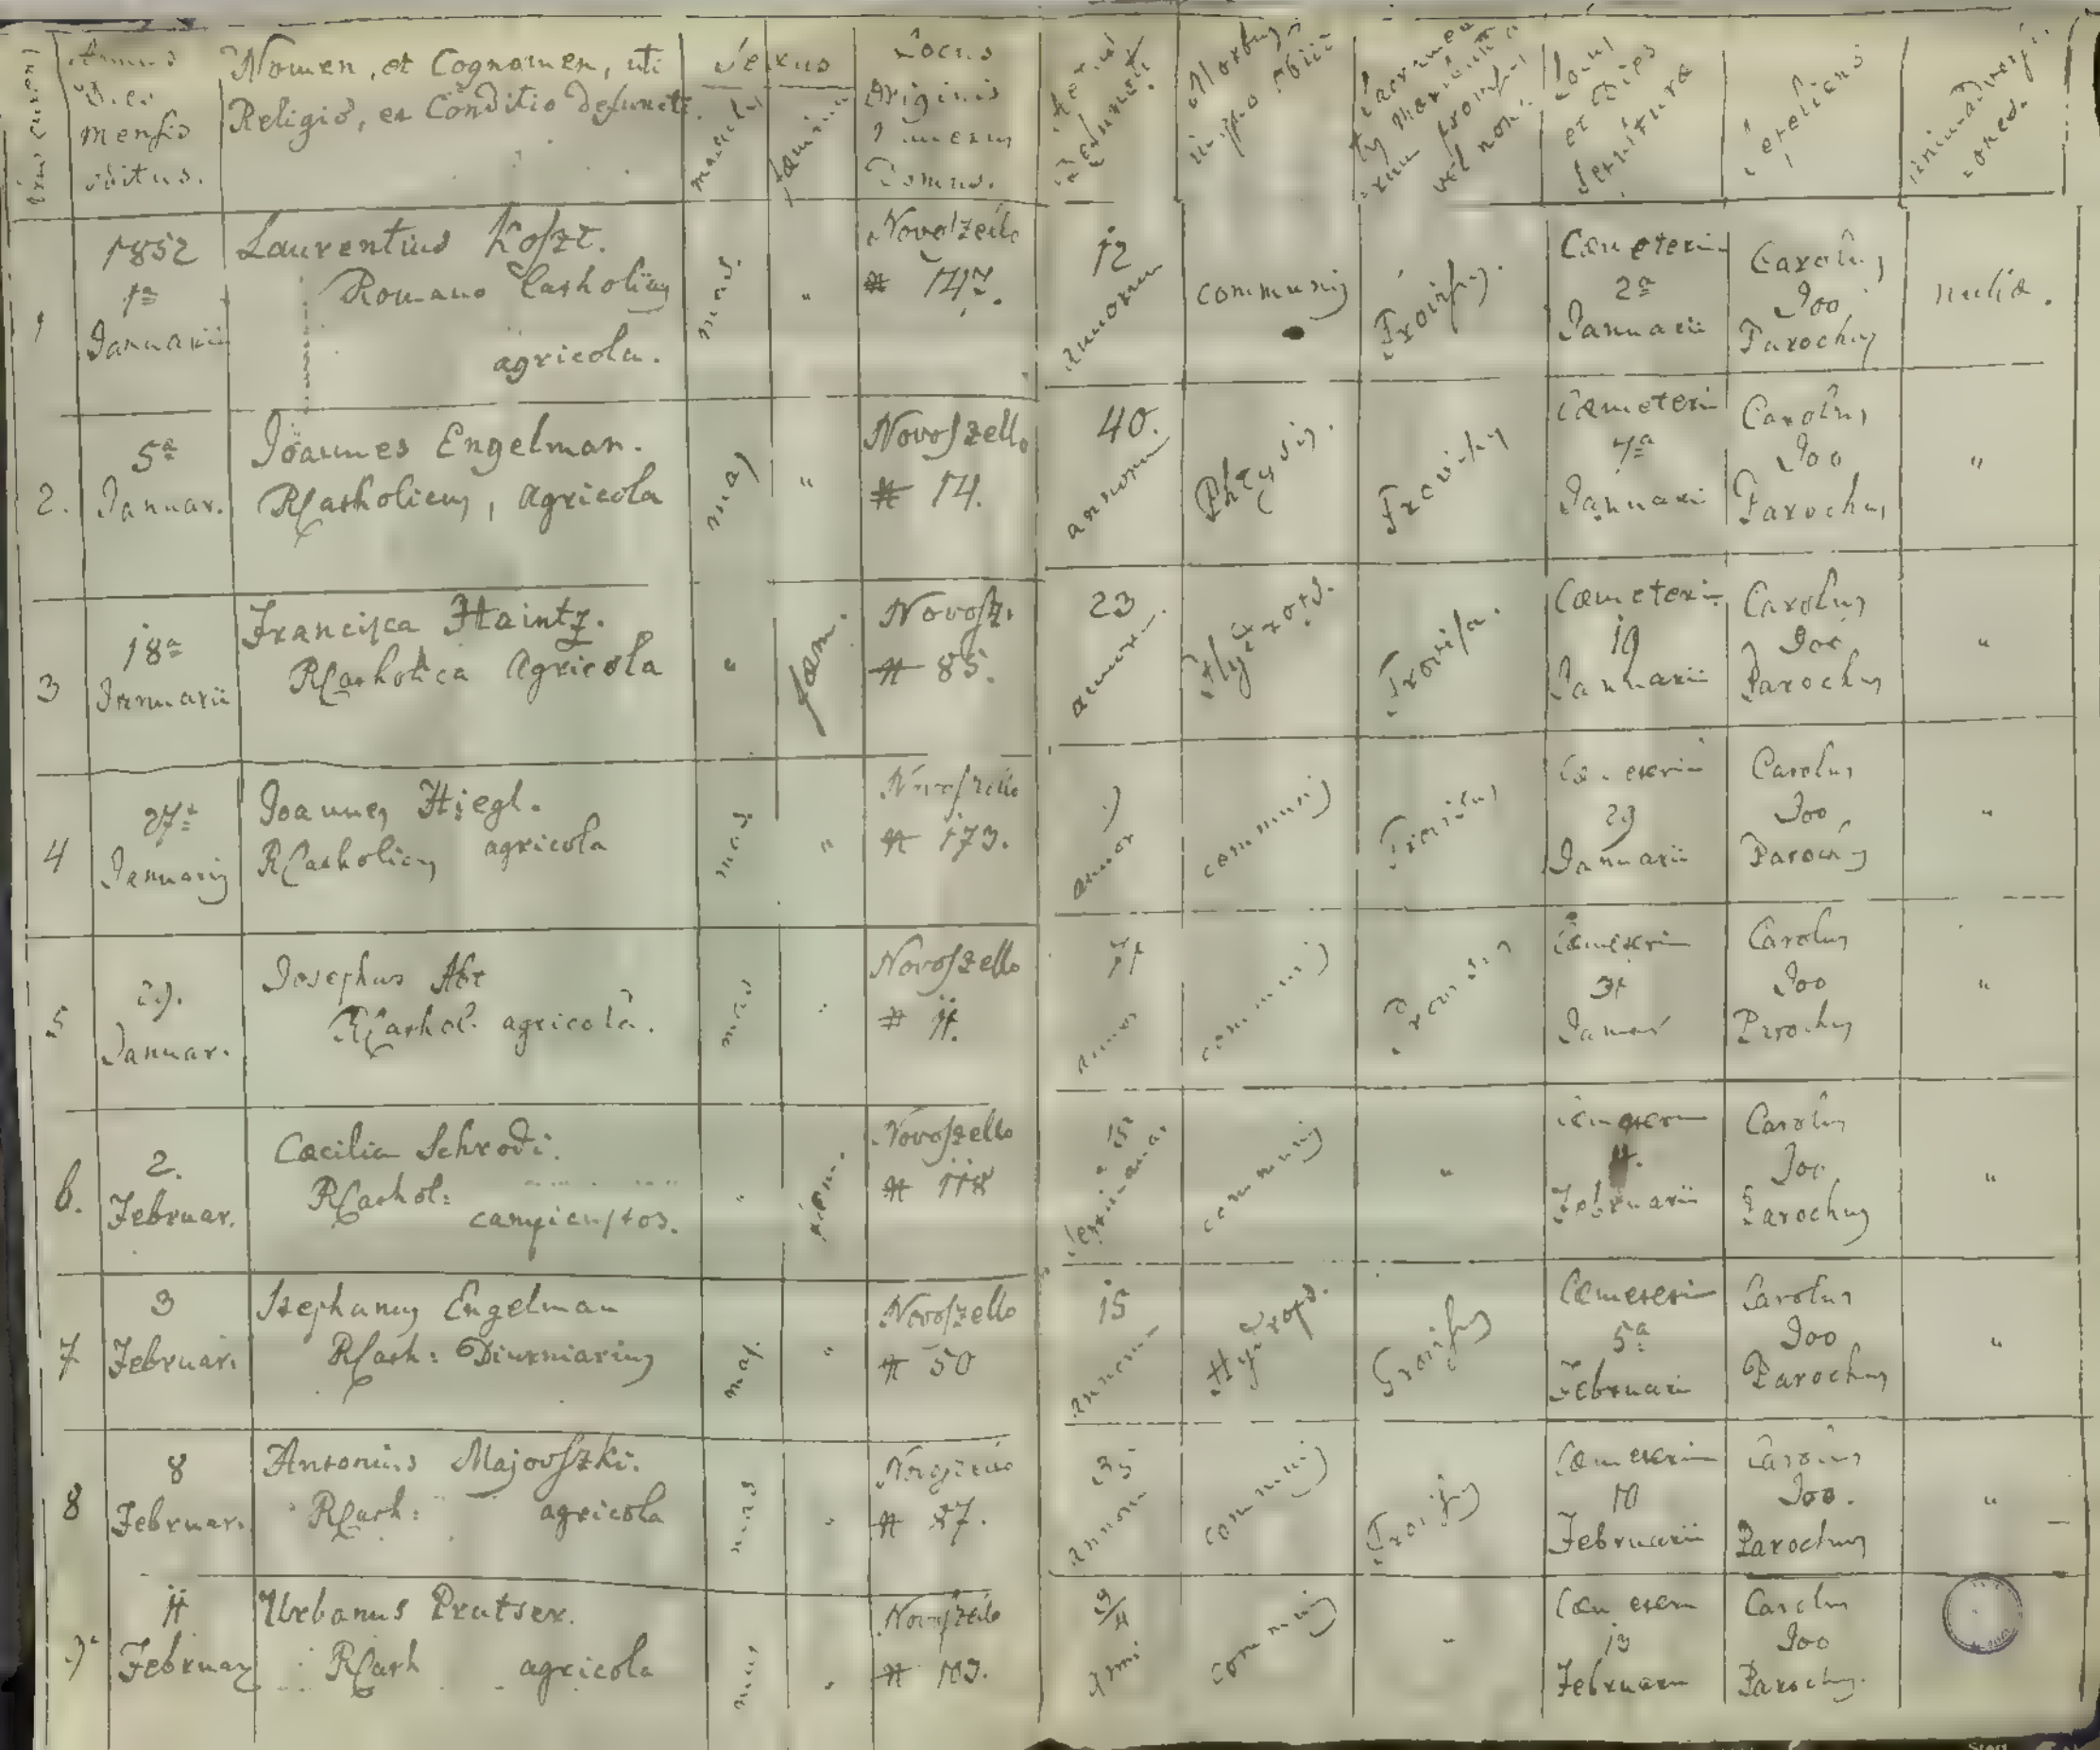 Nomen, et Cognomen, uti
Religio, et Conditio defuncti.
Sexus
Locus
Originis
Numerus
Domus.
mensis
obitus.
vel non.
et Dies
1
1852
1ª
Januarii
Laurentius Koszt.
Romano Catholicus
agricola.
mas.
"
Novoszello
# 147.
12
annorum
communis
Provisus.
Cæmeterium
2ª
Januarii
Carolus
Joo
Parochus
nulla.
2.
5ª
Januar.
Joannes Engelman.
RCatholicus, agricola
mas
"
Novoszello
# 14.
40.
annorum
Phtysis.
Provisus
Cæmeteri
7ª
Januarii
Carolus
Joo
Parochus
"
3
18ª
Januarii
Francisca Haintz.
RCatholica Agricola
"
fæm.
Novosz.
# 85.
23
annor.
Hydrops.
Provisa.
Cæmeteri
19
Januarii
Carolus
Joo
Parochus
"
4
27ª
Januarii
Joannes Hiegl.
RCatholicus agricola
mas
"
Novoszello
# 173.
annor
communis
Provisus
29
Januarii
Carolus
Joo
Parochus
"
5
29.
Januar.
Josephus Abt
RCathol. agricola.
mas
"
Novoszello
# 11.
71
annor
communis
Provisus
Cæmeteri
31
Januar
Carolus
Joo
Parochus
"
6.
2.
Februar.
Cæcilia Schrodi.
RCathol:
campicustos.
"
fæm.
Novoszello
# 118
communis
"
4.
Februarii
Carolus
Joo
Parochus
"
7
3
Februar.
Stephanus Engelman
RCath: Diurniarius
mas.
"
Novoszello
# 50
15
annorum
Hydrops.
Provisus
Cæmeteri
5ª
Februari
Carolus
Joo
Parochus
"
8
8
Februar.
Antonius Majovszki.
RCath: agricola
mas
"
Novoszello
# 87.
35
annorum
communis
Provisus
Cæmeteri
10
Februarii
Carolus
Joo.
Parochus
"
9
11
Februar
Urbanus Prutser.
RCath agricola
mas
"
Novoszello
# 103.
communis
"
13
Februari
Carolus
Joo
Parochus.